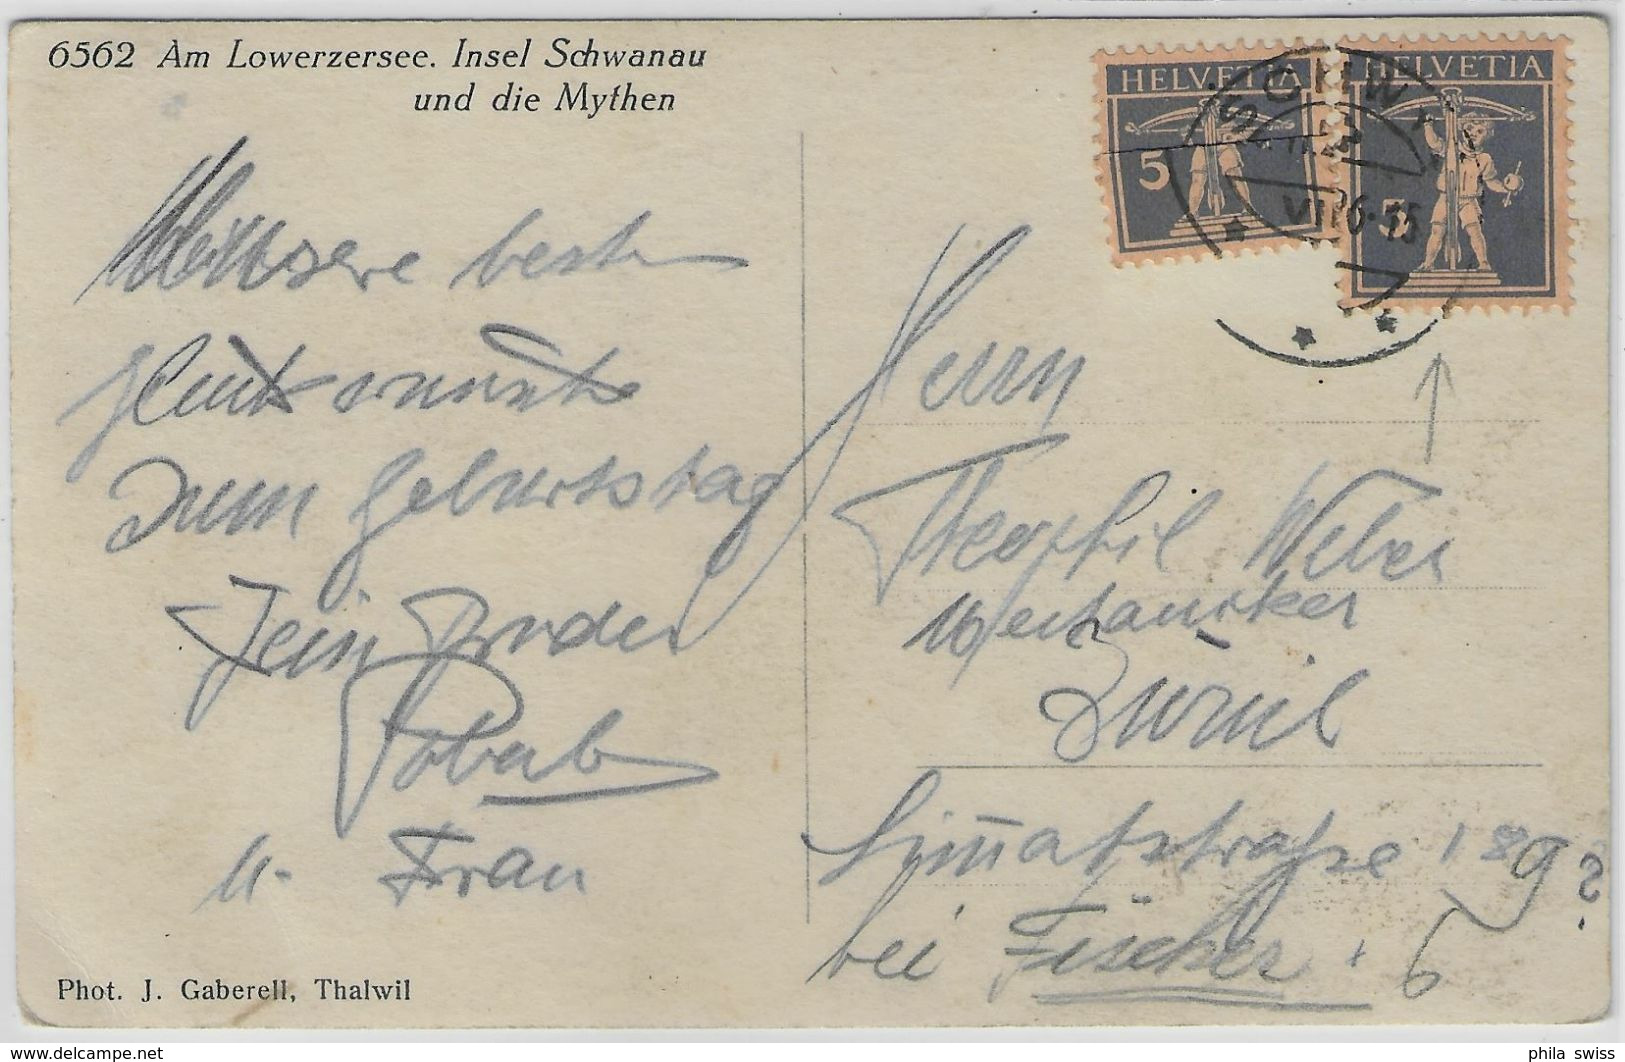 6562 Am Lowerzersee. Insel Schwanau
und die Mythen
HELVETIA
5
HELVETIA
5
SCHWYZ
VII 26-15
Unsere besten
Glückwünsche
zum Geburtstag
Dein Bruder
u. Frau
Herrn
Theophil Weber
Mechaniker
Zürich
Limmatstrasse 189?
bei Fischer. 6
Phot. J. Gaberell, Thalwil
phila swiss